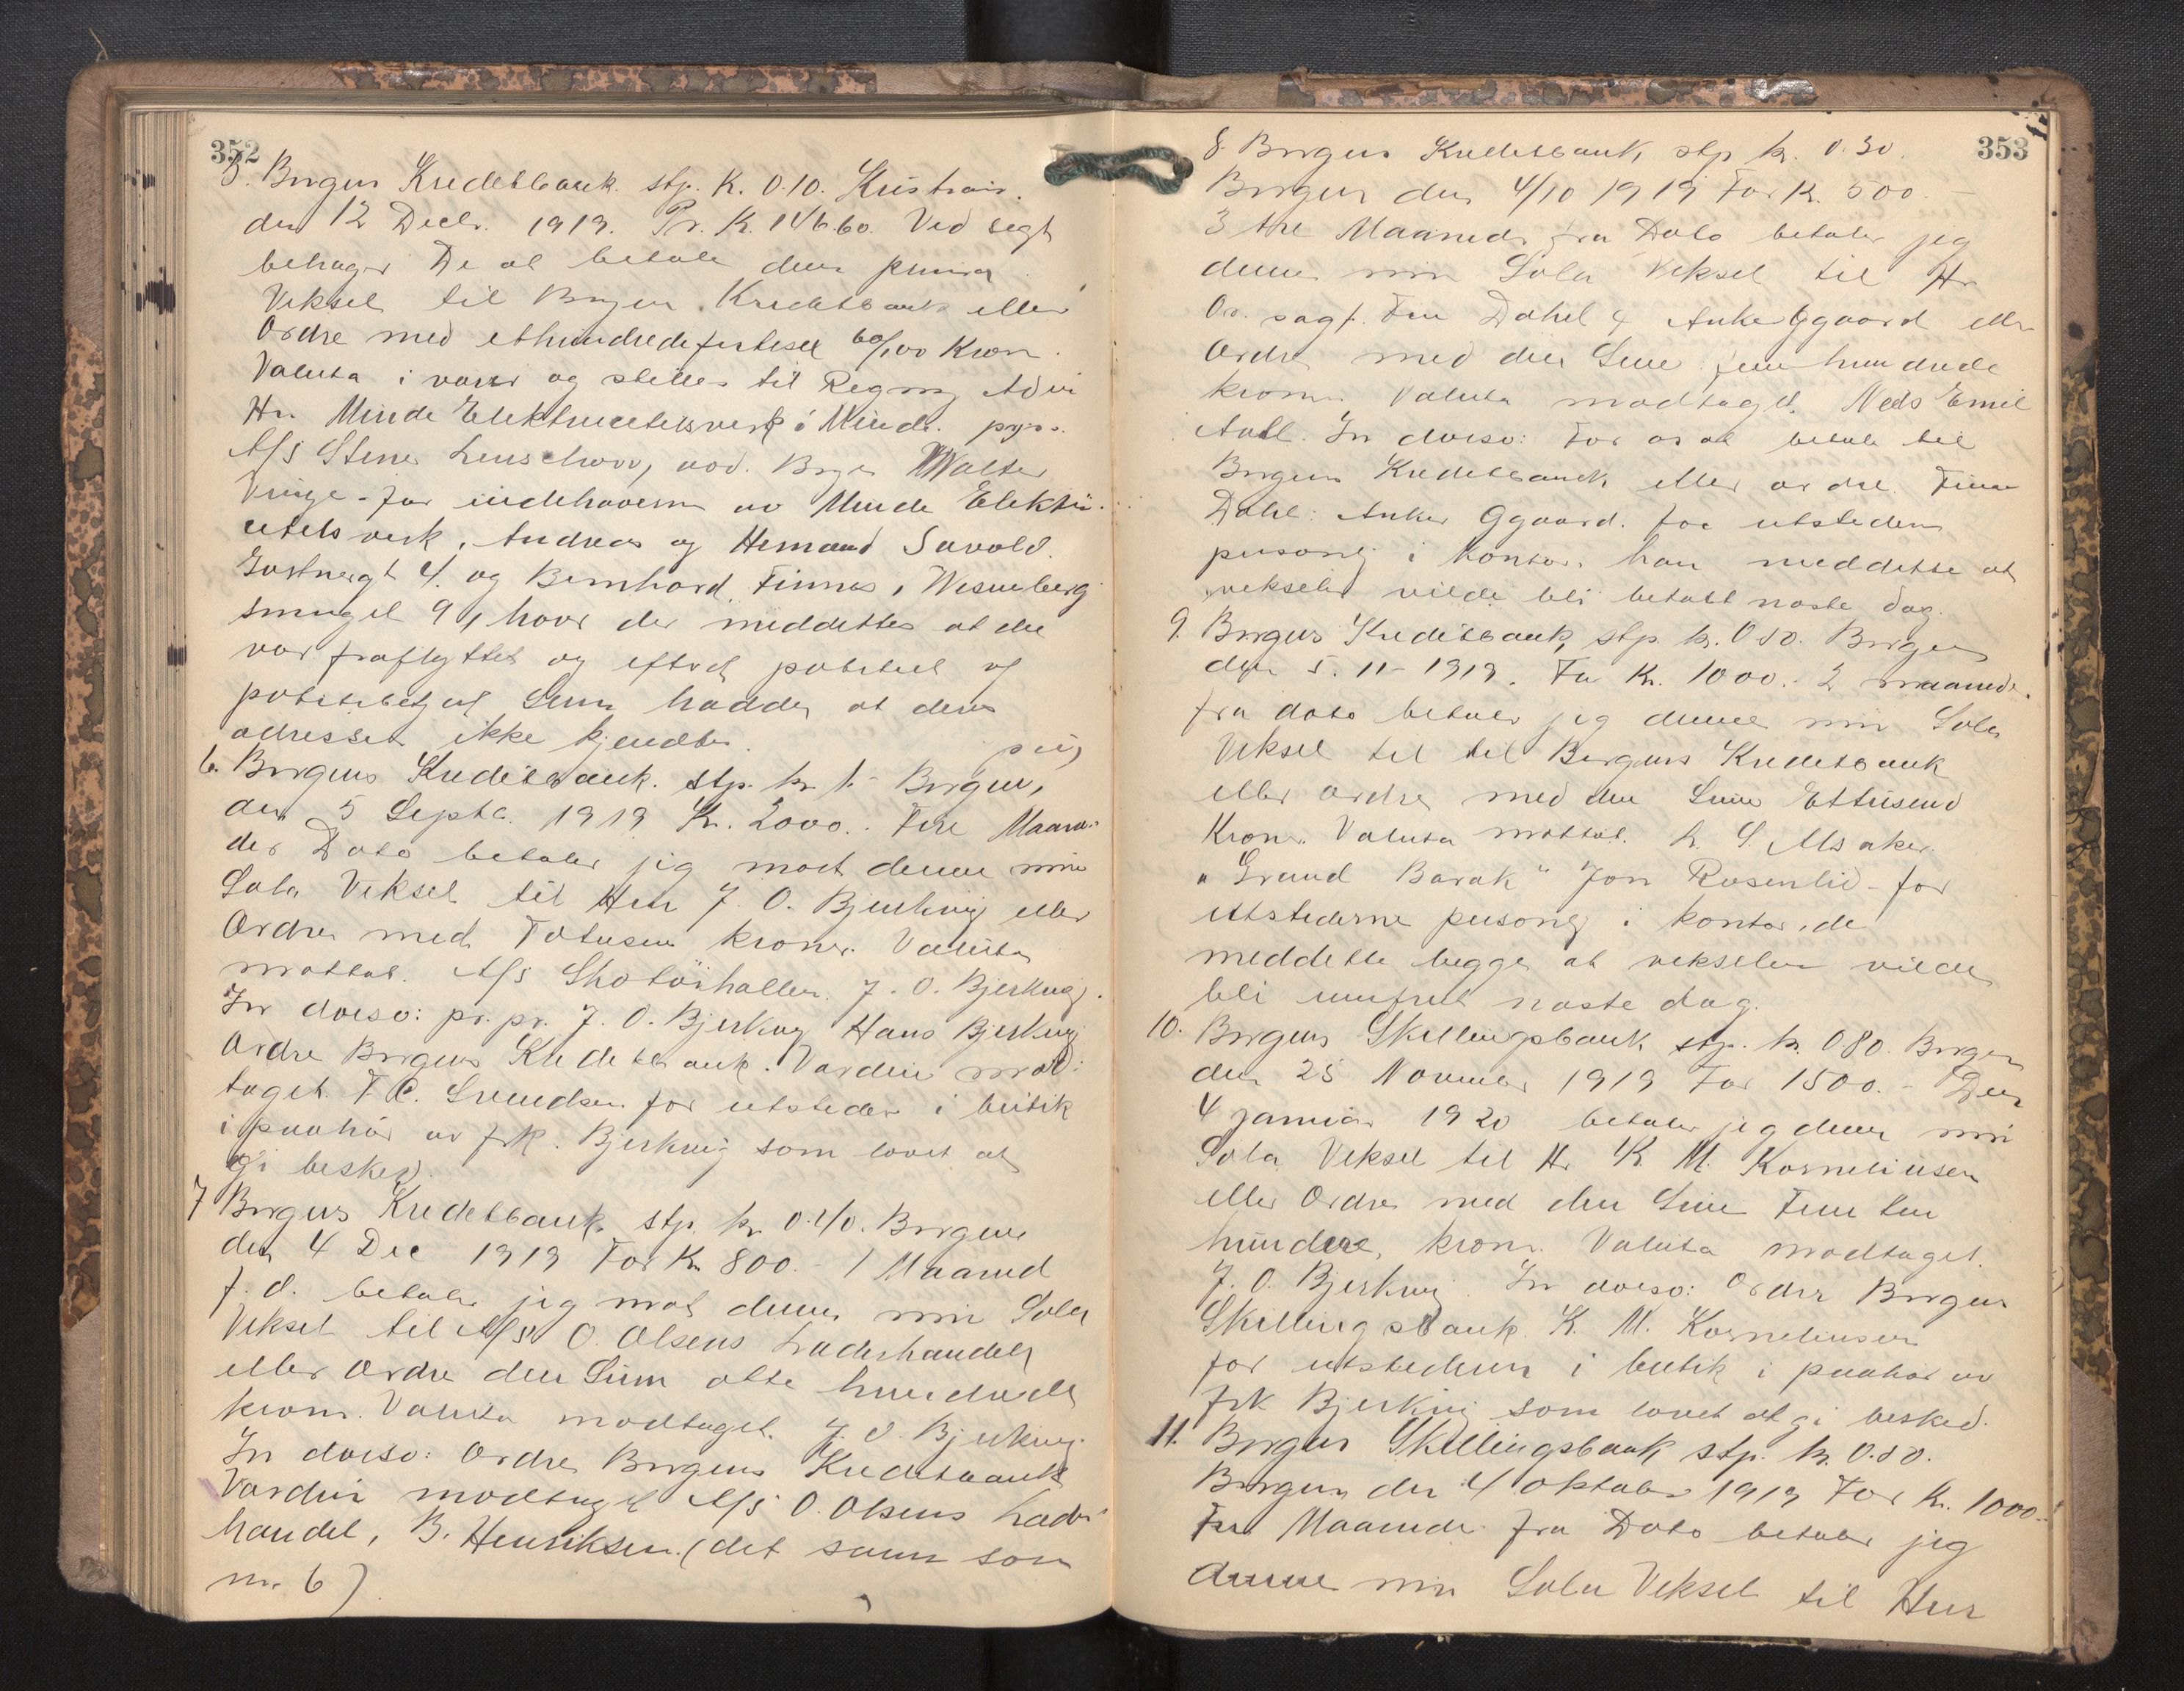 352
5. Bergens Kreditbank. stp. K. 0.10. Kristiania.
den 12 Decbr. 1919. Pr. K. 146.60. Ved sigt
behager De at betale denne prima
Veksel til Bergens Kreditbank eller
Ordre med ethundredefirtisex 60/100 Kroner.
Valuta i varer og stilles til Regning
Hr. Minde Elektricitetsverk i Minde.
A/S Stener Lenschow, avd. Bergen Walter
Vinge - for indehaverne av Minde Elektri-
citetsverk, Andreas og Hermand Savold.
4. og Bernhard Finnes, Wesenberg
smuget 9, hvor der meddeltes at de
var fraflyttet og efter politiet
at deres
adresser ikke kjendtes.
6. Bergens Kreditbank. stp. kr 1.- Bergen,
den 5 Septbr. 1919 Kr. 2000.- Fire Maane-
der Dato betaler jeg mot denne min
Sola Veksel til Herr J. O. Bjerkvig eller
Ordre med Totusen kroner. Valuta
mottat. A/S Skotöihallen. J. O. Bjerkvig.
In dorso: pr. pr. J. O. Bjerkvig Hans Bjerkvig
Ordre Bergens Kreditbank. Værdien mod-
taget. F. C. Svendsen for utsteder i butik
i paahör av frk. Bjerkvig som lovet at
gi besked.
7 Bergens Kreditbank. stp. kr 0.40. Bergen
den 4 Dec 1919 For Kr 800. - 1 Maaned
f. d. betaler jeg mot denne min Sola
Veksel til A/S O. Olsens Læderhandel
eller Ordre den Sum otte hundrede
kroner. Valuta modtaget. J. O. Bjerkvig.
In dorso: Ordre Bergens Kreditbank
Værdien modtaget A/S O. Olsens Læder
handel, B. Henriksen. (det samme som
nr. 6)
353
8. Bergens Kreditbank, stp kr. 0.30.
Bergen den 4/10 1919 For Kr. 500.-
3 tre Maaneder fra Dato betaler jeg
denne min Sola Veksel til Hr
Or. sagf. Finn Dahl & Anker Ggaard eller
Ordre med den Sum fem hundrede
kroner. Valuta modtaget. Nels Emil
In dorso: For os at betale til
Bergens Kreditbank eller ordre. Finn
Dahl: Anker Ggaard. for utstederen
personlig i kontor, han meddelte at
vekselen vilde bli betalt næste dag.
9. Bergens Kreditbank, stp. kr. 0.50. Bergen
den 5. 11 - 1919. For Kr. 1000.- 2 maaneder
fra dato betaler jeg denne min Sola
Veksel til til Bergens Kreditbank
eller ordre med den Sum Ettusend
Kroner. Valuta mottat. K. S. Alsaker.
"Grand Barak" Jon Rosenlid - for
utstederne personlig i kontor, de
meddelte begge at vekselen vilde
bli innfriet næste dag.
10. Bergens Skillingsbank stp. kr. 0.80. Bergen
den 25 November 1919 For 1500.- Den
4 januar 1920 betaler jeg denne min
Sola Veksel til Hr K. M. Korneliusen
eller Ordre med den Sum Femten
hundre, kroner. Valuta modtaget.
J. O. Bjerkvig. In dorso: Ordre Bergens
Skillingsbank. K. M. Korneliussen
for utstederen i butik i paahör av
frk Bjerkvig som lovet at gi besked.
11. Bergens Skillingsbank stp. kr. 0.50.
Bergen den 4 oktober 1919 For Kr. 1000.-
Tre Maaneder fra Dato betaler jeg
denne min Sola Veksel til Herr